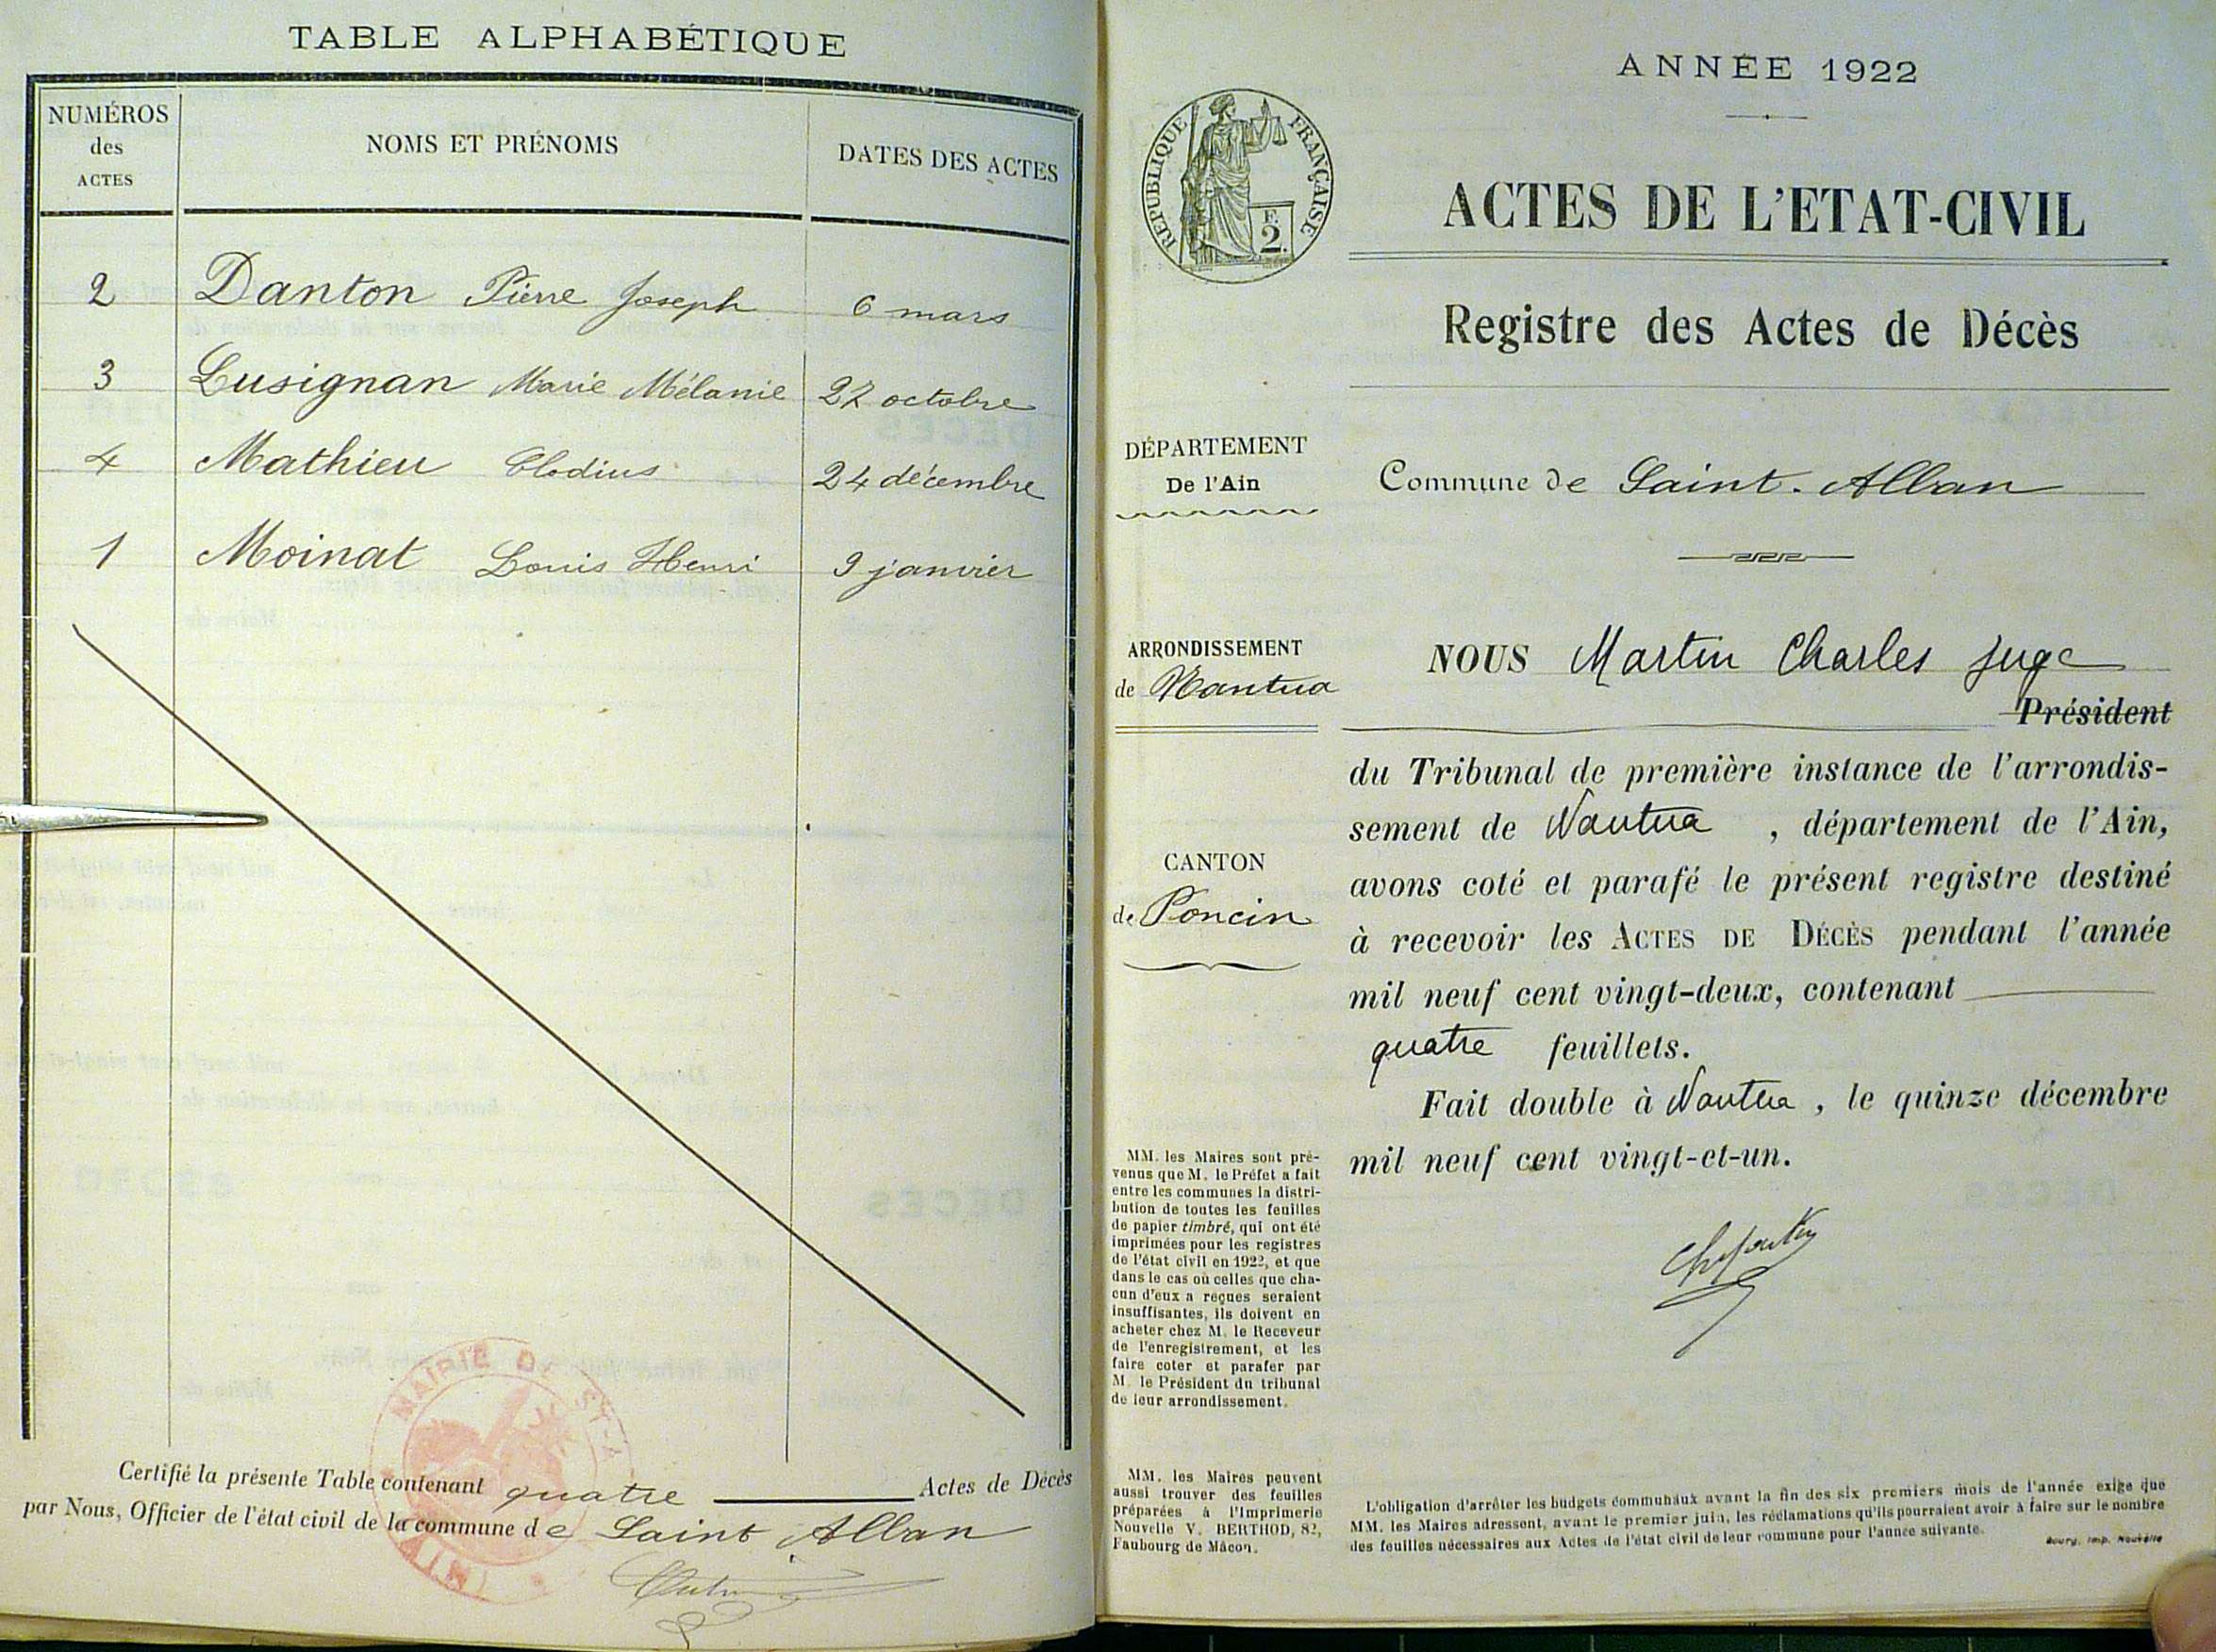 TABLE ALPHABÉTIQUE
NUMÉROS
des
ACTES
NOMS ET PRÉNOMS
DATES DES ACTES
2 Danton Pierre Joseph 6 mars
3 Lusignan Marie Mélanie 27 octobre
4 Mathieu Clodius 24 décembre
1 Moinat Louis Henri 9 janvier
MAIRIE DE ST-A
(AIN)
Certifié la présente Table contenant quatre Actes de Décès
par Nous, Officier de l'état civil de la commune de Saint Alban
ANNÉE 1922
RÉPUBLIQUE FRANÇAISE
F.
2.
ACTES DE L'ETAT-CIVIL
Registre des Actes de Décès
DÉPARTEMENT
De l'Ain
Commune de Saint-Alban
ARRONDISSEMENT
de Nantua
NOUS Martin Charles juge
Président
du Tribunal de première instance de l'arrondis-
sement de Nantua, département de l'Ain,
CANTON
de Poncin
avons coté et parafé le présent registre destiné
à recevoir les ACTES DE DÉCÈS pendant l'année
mil neuf cent vingt-deux, contenant
quatre feuillets.
Fait double à Nantua, le quinze décembre
mil neuf cent vingt-et-un.
MM. les Maires sont pré-
venus que M. le Préfet a fait
entre les communes la distri-
bution de toutes les feuilles
de papier timbré, qui ont été
imprimées pour les registres
de l'état civil en 1922, et que
dans le cas où celles que cha-
cun d'eux a reçues seraient
insuffisantes, ils doivent en
acheter chez M. le Receveur
de l'enregistrement, et les
faire coter et parafer par
M. le Président du tribunal
de leur arrondissement.
MM. les Maires peuvent
aussi trouver des feuilles
préparées à l'Imprimerie
Nouvelle V. BERTHOD, 82,
Faubourg de Mâcon.
L'obligation d'arrêter les budgets communaux avant la fin des six premiers mois de l'année exige que
MM. les Maires adressent, avant le premier juin, les réclamations qu'ils pourraient avoir à faire sur le nombre
des feuilles nécessaires aux Actes de l'état civil de leur commune pour l'année suivante.
Bourg, Imp. Nouvelle